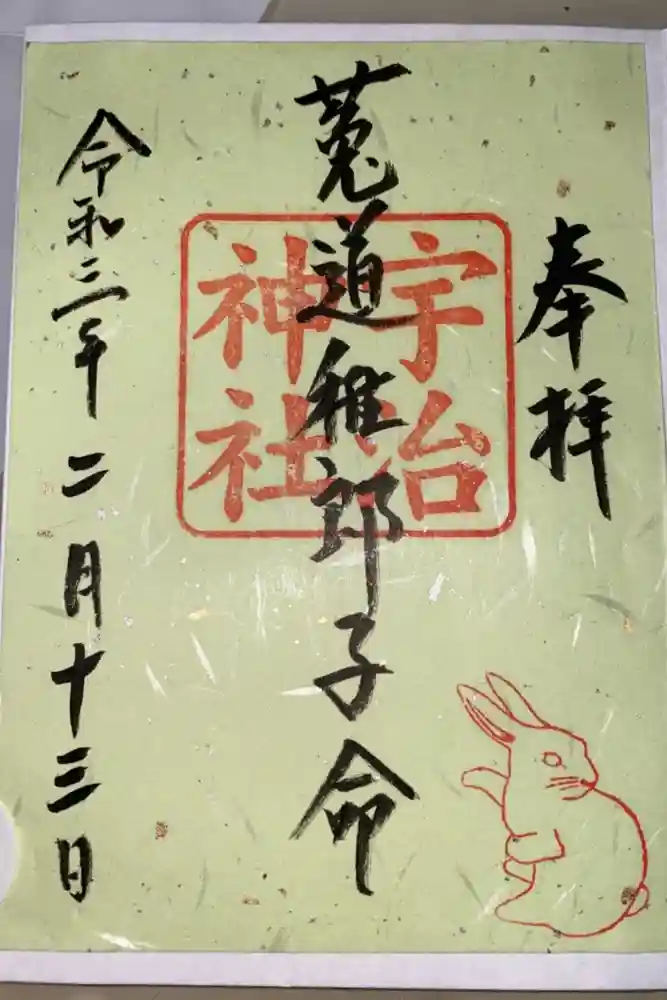 奉拝
菟道稚郎子命
宇治
神社
令和三年二月十三日